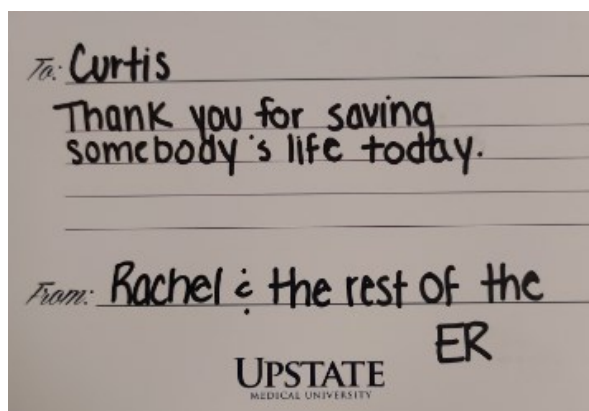 To: Curtis
Thank you for saving
somebody's life today.
From: Rachel & the rest of the
ER
UPSTATE
MEDICAL UNIVERSITY